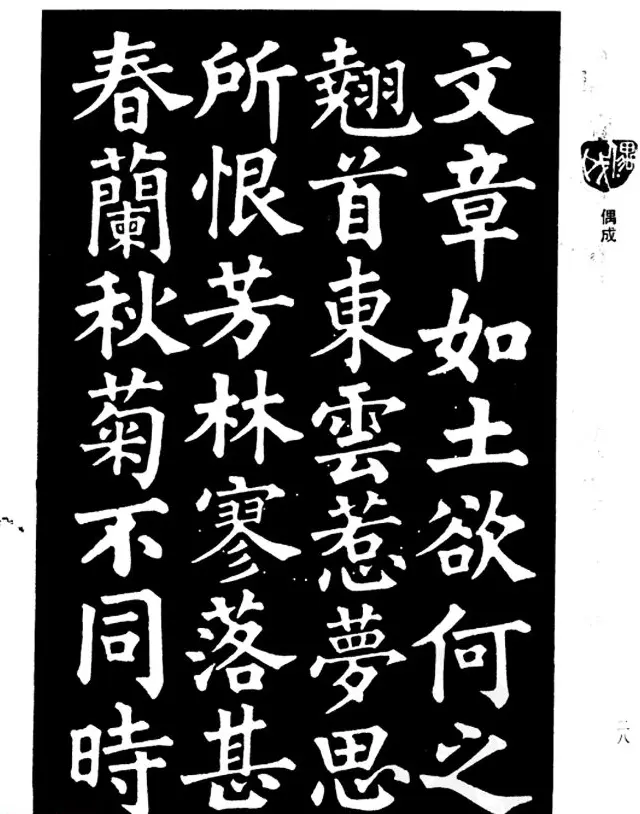 文章如土欲何之
翹首東雲惹夢思
所恨芳林寥落甚
春蘭秋菊不同時
偶成
偶成
二八